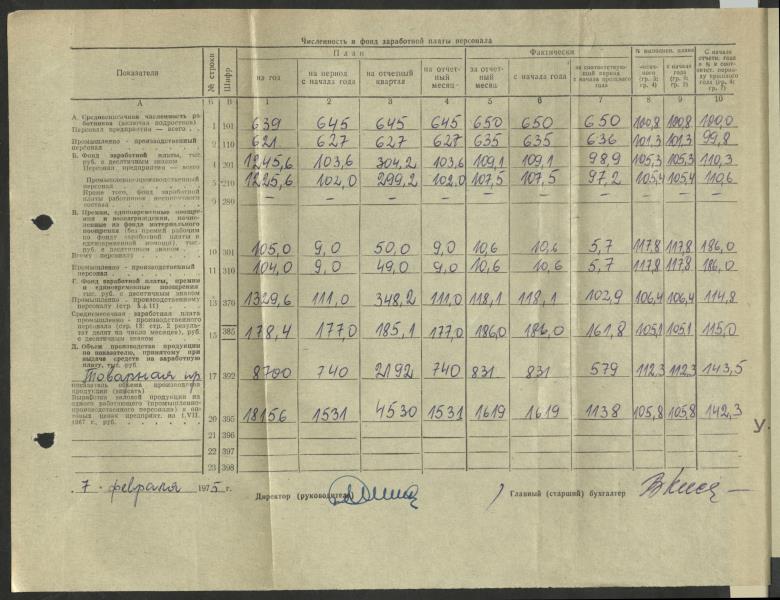 Численность и фонд заработной платы персонала
Показатели № строки Шифр План Фактически % выполнен. плана С начала отчетн. года
на год на период с начала года на отчетный квартал на отчет- месяц за отчет- месяц с начала года за соответствую- период с начала прошлого года с начала года
А Б В 1 2 3 4 5 6 7 8 9 10
А. Среднесписочная численность ра-
ботников (включая подростков)
Персонал предприятия — всего 1 101 639 645 645 645 650 650 650 100,8 100,8 100,0
Промышленно - производственный
персонал 2 110 621 627 627 627 635 635 636 101,3 101,3 99,8
Б. Фонд заработной платы, тыс.
руб. с десятичным знаком
Персонал предприятия — всего 4 201 1245,6 103,6 304,2 103,6 109,1 109,1 98,9 105,3 105,3 110,3
Промышленно-производственный
персонал 5 210 1225,6 102,0 299,2 102,0 107,5 107,5 97,2 105,4 105,4 110,6
Кроме того, фонд заработной
платы работников несписочного
состава 9 280 — — — — — — — — — —
В. Премии, единовременные поощре-
ния и вознаграждения, начис-
ленные из фонда материального
поощрения (без премий рабочим
из фонда заработной платы и
единовременной помощи), тыс.
руб. с десятичным знаком
Всему персоналу 10 301 105,0 9,0 50,0 9,0 10,6 10,6 5,7 117,8 117,8 186,0
Промышленно - производственный
персонал 11 310 104,0 9,0 49,0 9,0 10,6 10,6 5,7 117,8 117,8 186,0
Г. Фонд заработной платы, премии
и единовременные поощрения
тыс. руб. с десятичным знаком
Промышленно - производственному
персоналу (стр. 5 + 11) 13 370 1329,6 111,0 348,2 111,0 118,1 118,1 102,9 106,4 106,4 114,8
Среднемесячная заработная плата
промышленно - производственного
персонала (стр. 13: стр. 2 резуль-
тат делят на число месяцев), руб.
с десятичным знаком 15 385 178,4 177,0 185,1 177,0 186,0 186,0 161,8 105,1 105,1 115,0
Д. Объем производства продукции
по показателю, принятому при
выдаче средств на заработную
плату, тыс. руб.
Товарная пр 17 392 8700 740 2192 740 831 831 579 112,3 112,3 143,5
показатель объема производства
продукции (вписать)
Выработка валовой продукции на
одного работающего (промышленно-
производственного персонала) в оп-
товых ценах предприят. на 1.VII.
1967 г., руб. 20 395 18156 1531 4530 1531 1619 1619 1138 105,8 105,8 142,3
21 396
22 397
23 398
7 февраля 1975 г. Директор (руководитель) Главный (старший) бухгалтер
У.